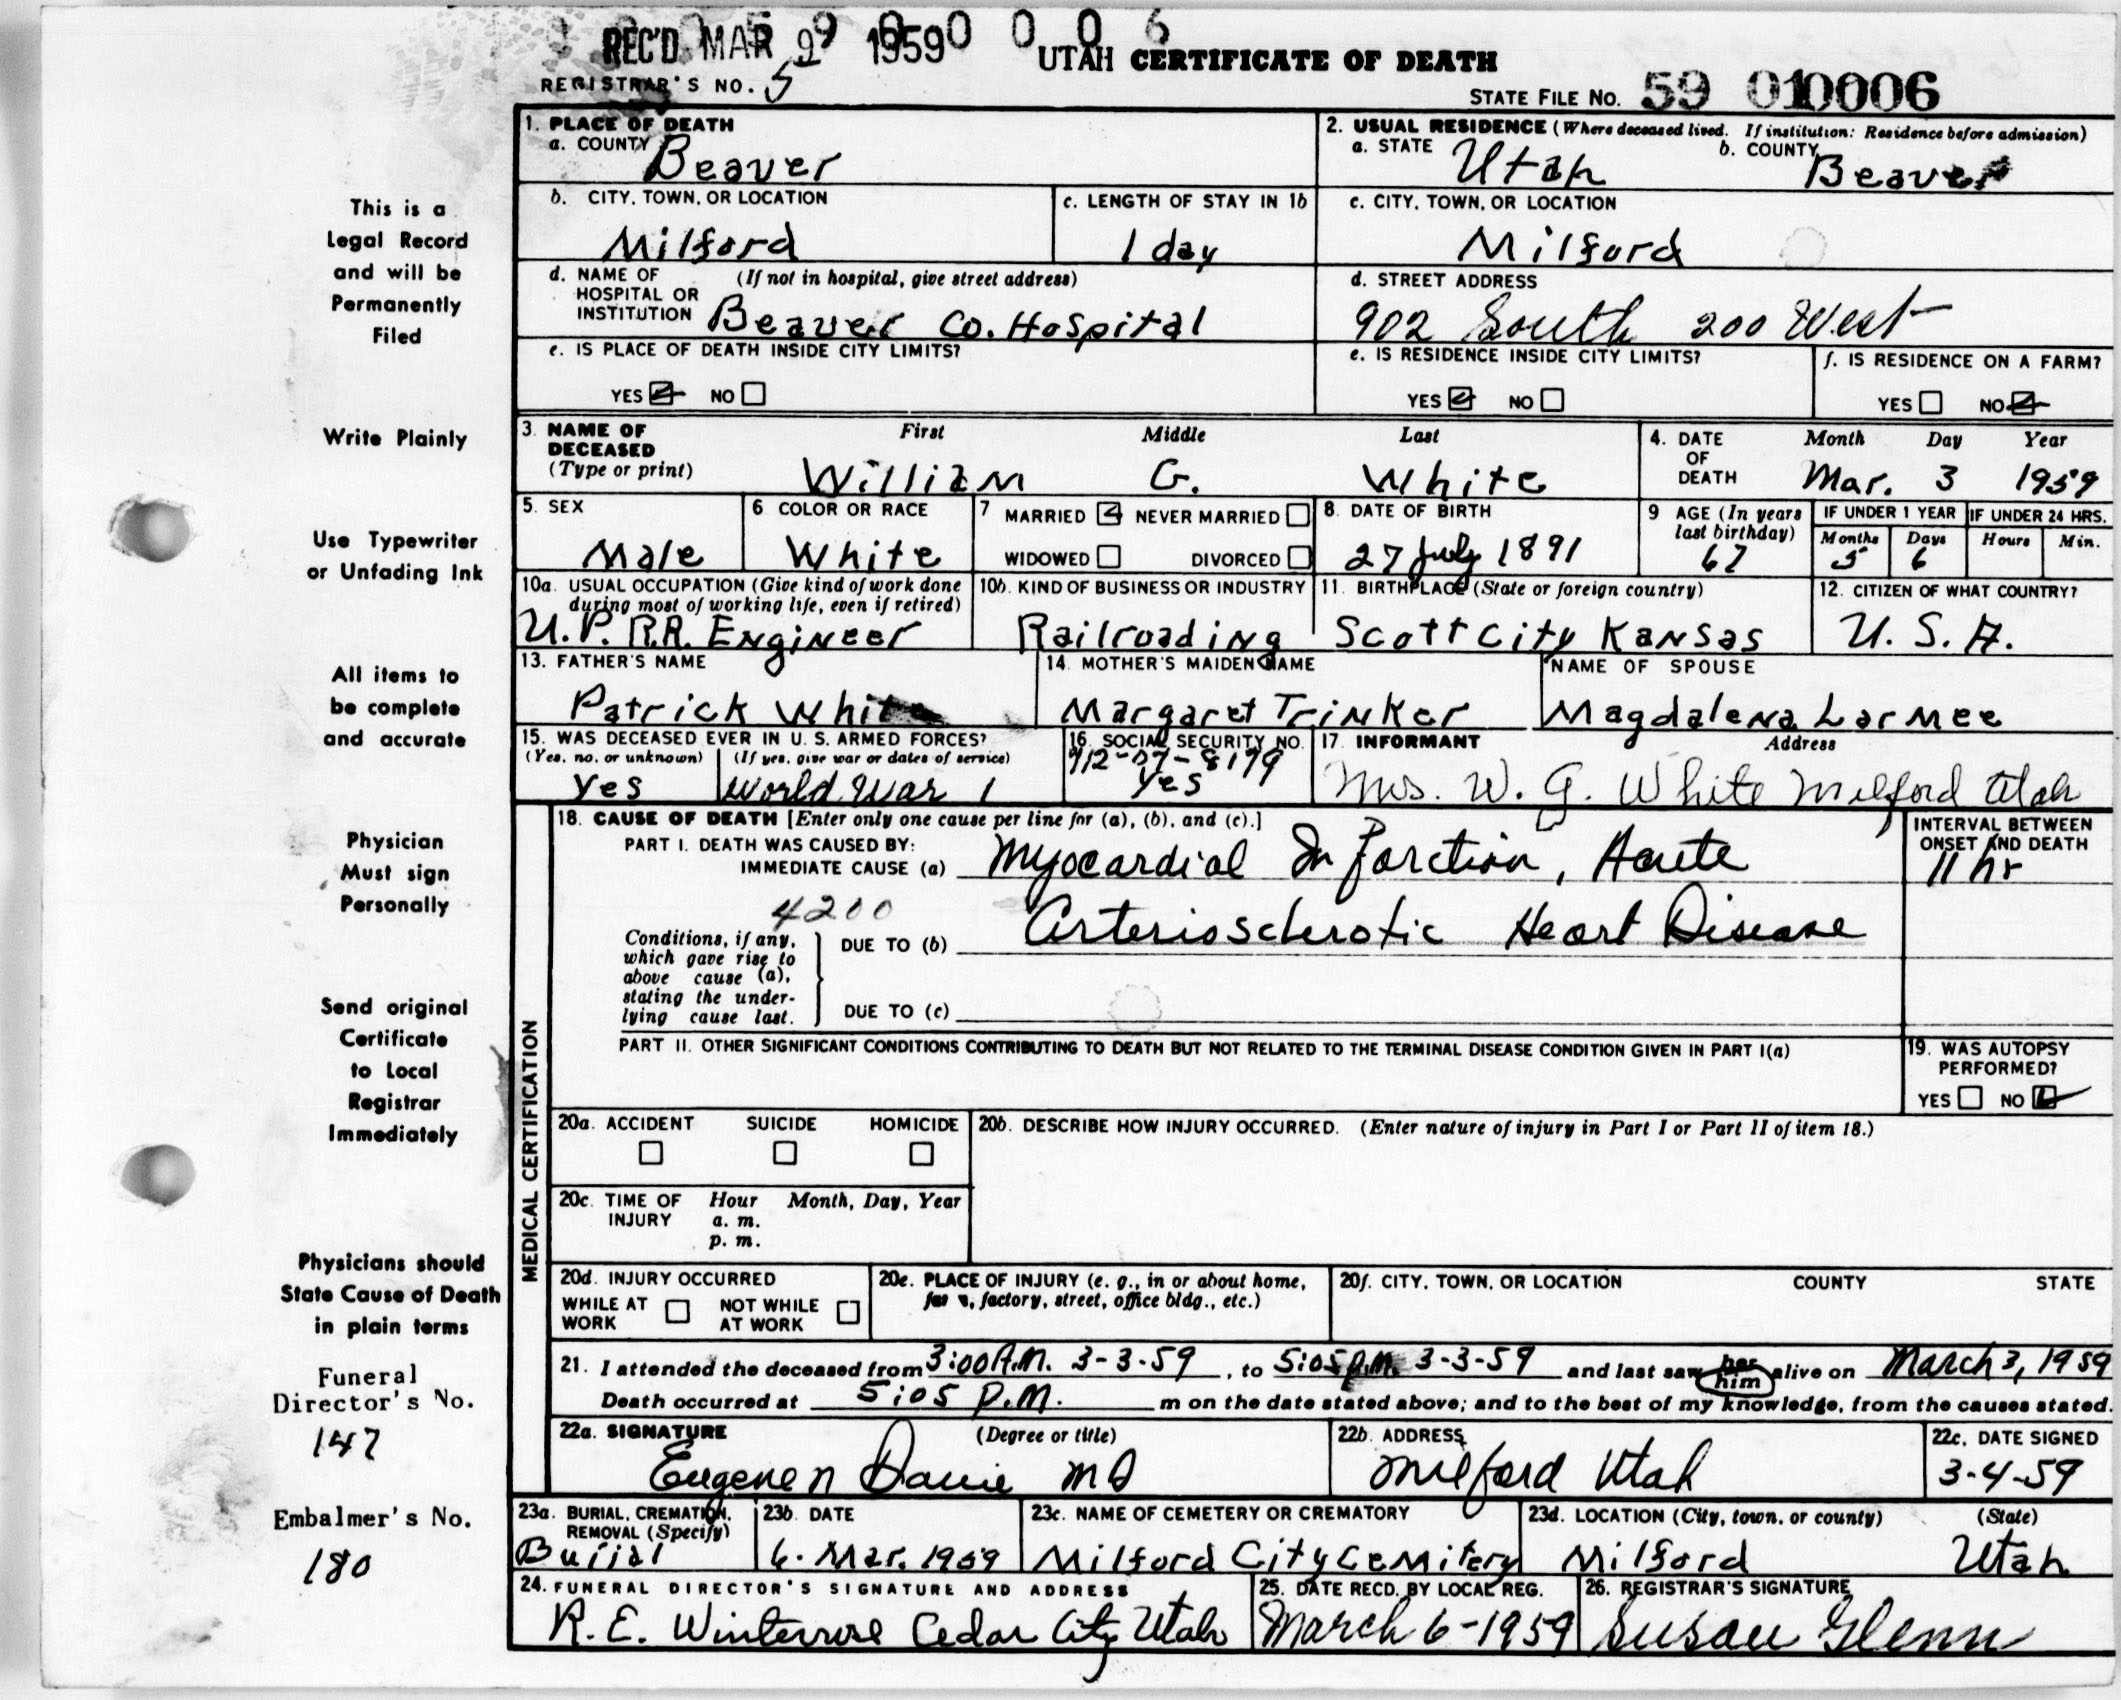 REC'D MAR 9 1959
0 0 0 6
UTAH CERTIFICATE OF DEATH
REGISTRAR'S NO. 5
STATE FILE NO. 59 010006
This is a
Legal Record
and will be
Permanently
Filed
Write Plainly
Use Typewriter
or Unfading Ink
All items to
be complete
and accurate
Physician
Must sign
Personally
Send original
Certificate
to Local
Registrar
Immediately
Physicians should
State Cause of Death
in plain terms
Funeral
Director's No.
147
Embalmer's No.
180
1. PLACE OF DEATH
a. COUNTY Beaver
2. USUAL RESIDENCE (Where deceased lived. If institution: Residence before admission)
a. STATE Utah b. COUNTY Beaver
b. CITY, TOWN, OR LOCATION
Milford
c. LENGTH OF STAY IN 1b
1 day
c. CITY, TOWN, OR LOCATION
Milford
d. NAME OF (If not in hospital, give street address)
HOSPITAL OR
INSTITUTION Beaver Co. Hospital
d. STREET ADDRESS
902 South 200 West
e. IS PLACE OF DEATH INSIDE CITY LIMITS?
YES NO
e. IS RESIDENCE INSIDE CITY LIMITS?
YES NO
f. IS RESIDENCE ON A FARM?
YES NO
3. NAME OF First Middle Last
DECEASED
(Type or print) William G. White
4. DATE Month Day Year
OF
DEATH Mar. 3 1959
5. SEX
Male
6. COLOR OR RACE
White
7 MARRIED NEVER MARRIED
WIDOWED DIVORCED
8. DATE OF BIRTH
27 July 1891
9 AGE (In years
last birthday)
67
IF UNDER 1 YEAR
Months Days
5 6
IF UNDER 24 HRS.
Hours Min.
10a. USUAL OCCUPATION (Give kind of work done
during most of working life, even if retired)
U.P. R.R. Engineer
10b. KIND OF BUSINESS OR INDUSTRY
Railroading
11. BIRTHPLACE (State or foreign country)
Scott City Kansas
12. CITIZEN OF WHAT COUNTRY?
U. S. A.
13. FATHER'S NAME
Patrick White
14. MOTHER'S MAIDEN NAME
Margaret Trinker
NAME OF SPOUSE
Magdalena Larmee
15. WAS DECEASED EVER IN U. S. ARMED FORCES?
(Yes, no, or unknown) (If yes, give war or dates of service)
Yes World War 1
16. SOCIAL SECURITY NO.
712-07-8179
Yes
17. INFORMANT Address
Mrs. W. G. White Milford Utah
MEDICAL CERTIFICATION
18. CAUSE OF DEATH [Enter only one cause per line for (a), (b), and (c).]
PART I. DEATH WAS CAUSED BY:
IMMEDIATE CAUSE (a) Myocardial Infarction, Acute
INTERVAL BETWEEN
ONSET AND DEATH
11 hr
4200
Conditions, if any,
which gave rise to
above cause (a),
stating the under-
lying cause last.
DUE TO (b) Arteriosclerotic Heart Disease
DUE TO (c)
PART II. OTHER SIGNIFICANT CONDITIONS CONTRIBUTING TO DEATH BUT NOT RELATED TO THE TERMINAL DISEASE CONDITION GIVEN IN PART I(a)
19. WAS AUTOPSY
PERFORMED?
YES NO
20a. ACCIDENT SUICIDE HOMICIDE
20b. DESCRIBE HOW INJURY OCCURRED. (Enter nature of injury in Part I or Part II of item 18.)
20c. TIME OF Hour Month, Day, Year
INJURY a. m.
p. m.
20d. INJURY OCCURRED
WHILE AT NOT WHILE
WORK AT WORK
20e. PLACE OF INJURY (e. g., in or about home,
farm, factory, street, office bldg., etc.)
20f. CITY, TOWN, OR LOCATION COUNTY STATE
21. I attended the deceased from 3:00 A.M. 3-3-59, to 5:05 P.M. 3-3-59 and last saw her him alive on March 3, 1959
Death occurred at 5:05 P.M. m on the date stated above; and to the best of my knowledge, from the causes stated.
22a. SIGNATURE (Degree or title)
Eugene N Davie MD
22b. ADDRESS
Milford Utah
22c. DATE SIGNED
3-4-59
23a. BURIAL, CREMATION,
REMOVAL (Specify)
Burial
23b. DATE
6. Mar. 1959
23c. NAME OF CEMETERY OR CREMATORY
Milford City Cemitery
23d. LOCATION (City, town, or county) (State)
Milford Utah
24. FUNERAL DIRECTOR'S SIGNATURE AND ADDRESS
R. E. Winterrose Cedar City Utah
25. DATE RECD. BY LOCAL REG.
March 6-1959
26. REGISTRAR'S SIGNATURE
Susan Glenn